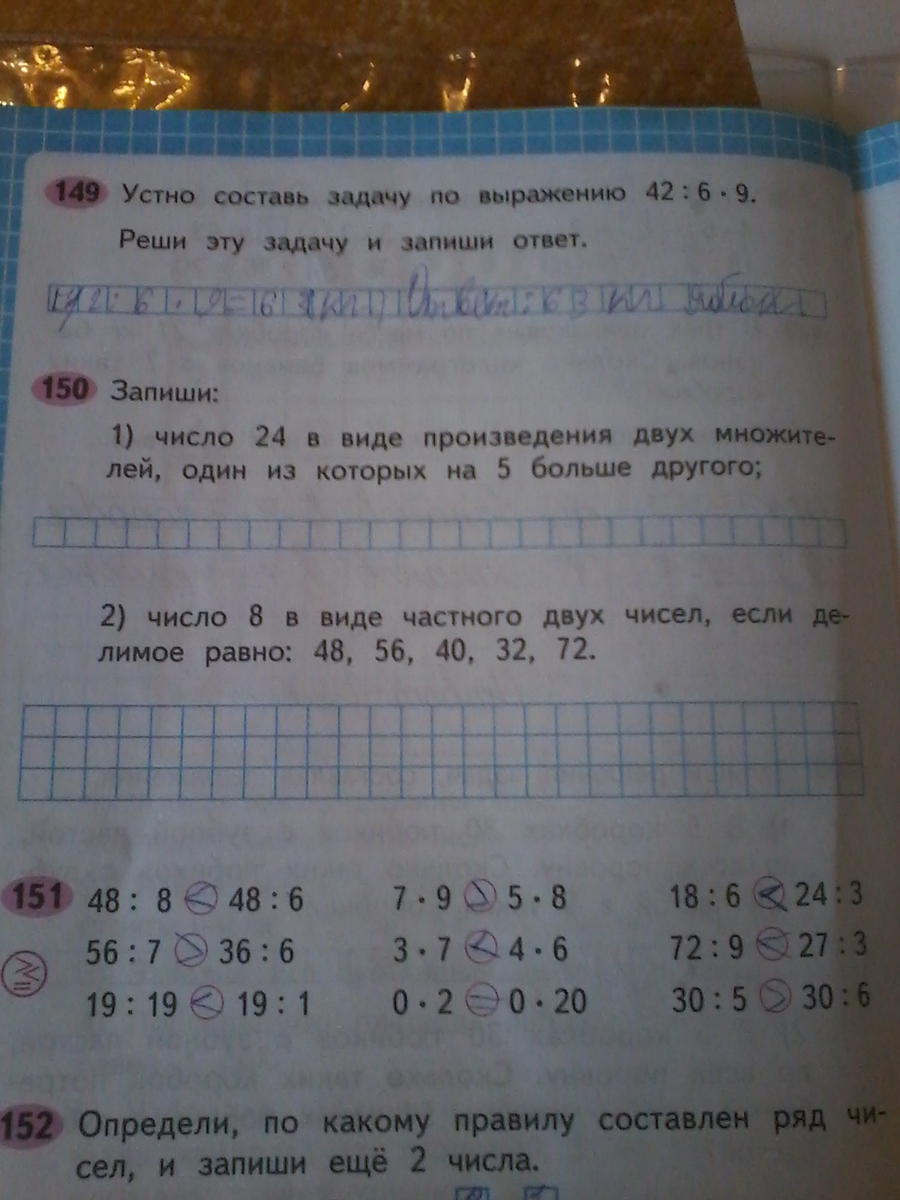 149 Устно составь задачу по выражению 42 : 6 · 9.
Реши эту задачу и запиши ответ.
42 : 6 · 9 = 63 (кг) Ответ: 63 кг яблок
150 Запиши:
1) число 24 в виде произведения двух множите-
лей, один из которых на 5 больше другого;
2) число 8 в виде частного двух чисел, если де-
лимое равно: 48, 56, 40, 32, 72.
151 48 : 8 < 48 : 6 7 · 9 > 5 · 8 18 : 6 < 24 : 3
56 : 7 > 36 : 6 3 · 7 < 4 · 6 72 : 9 < 27 : 3
19 : 19 < 19 : 1 0 · 2 = 0 · 20 30 : 5 > 30 : 6
152 Определи, по какому правилу составлен ряд чи-
сел, и запиши ещё 2 числа.